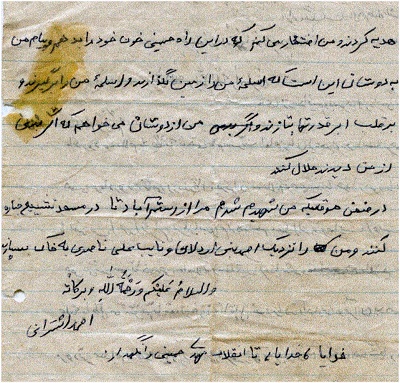 هدیه کردند و من افتخار می‌کنم که در این راه حسینی خون خود را بدهم و پیام من
به دوستان این است که اسلحهٔ من را زمین نگذارند و اسلحهٔ من را برگیرند و
بر قلب ابرقدرتها بتازند و اگر من از دوستان می خواهم که اگر بدی
از من دیدند حلال کنند
در ضمن موقعیکه من شهید شدم مرا از رشیدآباد تا در مسجد تشییع جنازه
کنند و من را نزدیک احمد اردلان و یا نایبعلی ناصری به خاک بسپارید
والسلامُ علیکم و رَحْمَةُ اللّهِ و برکاتُه
احمد اشترانی
خدایا خدایا تا انقلاب مهدی خمینی را نگهدار